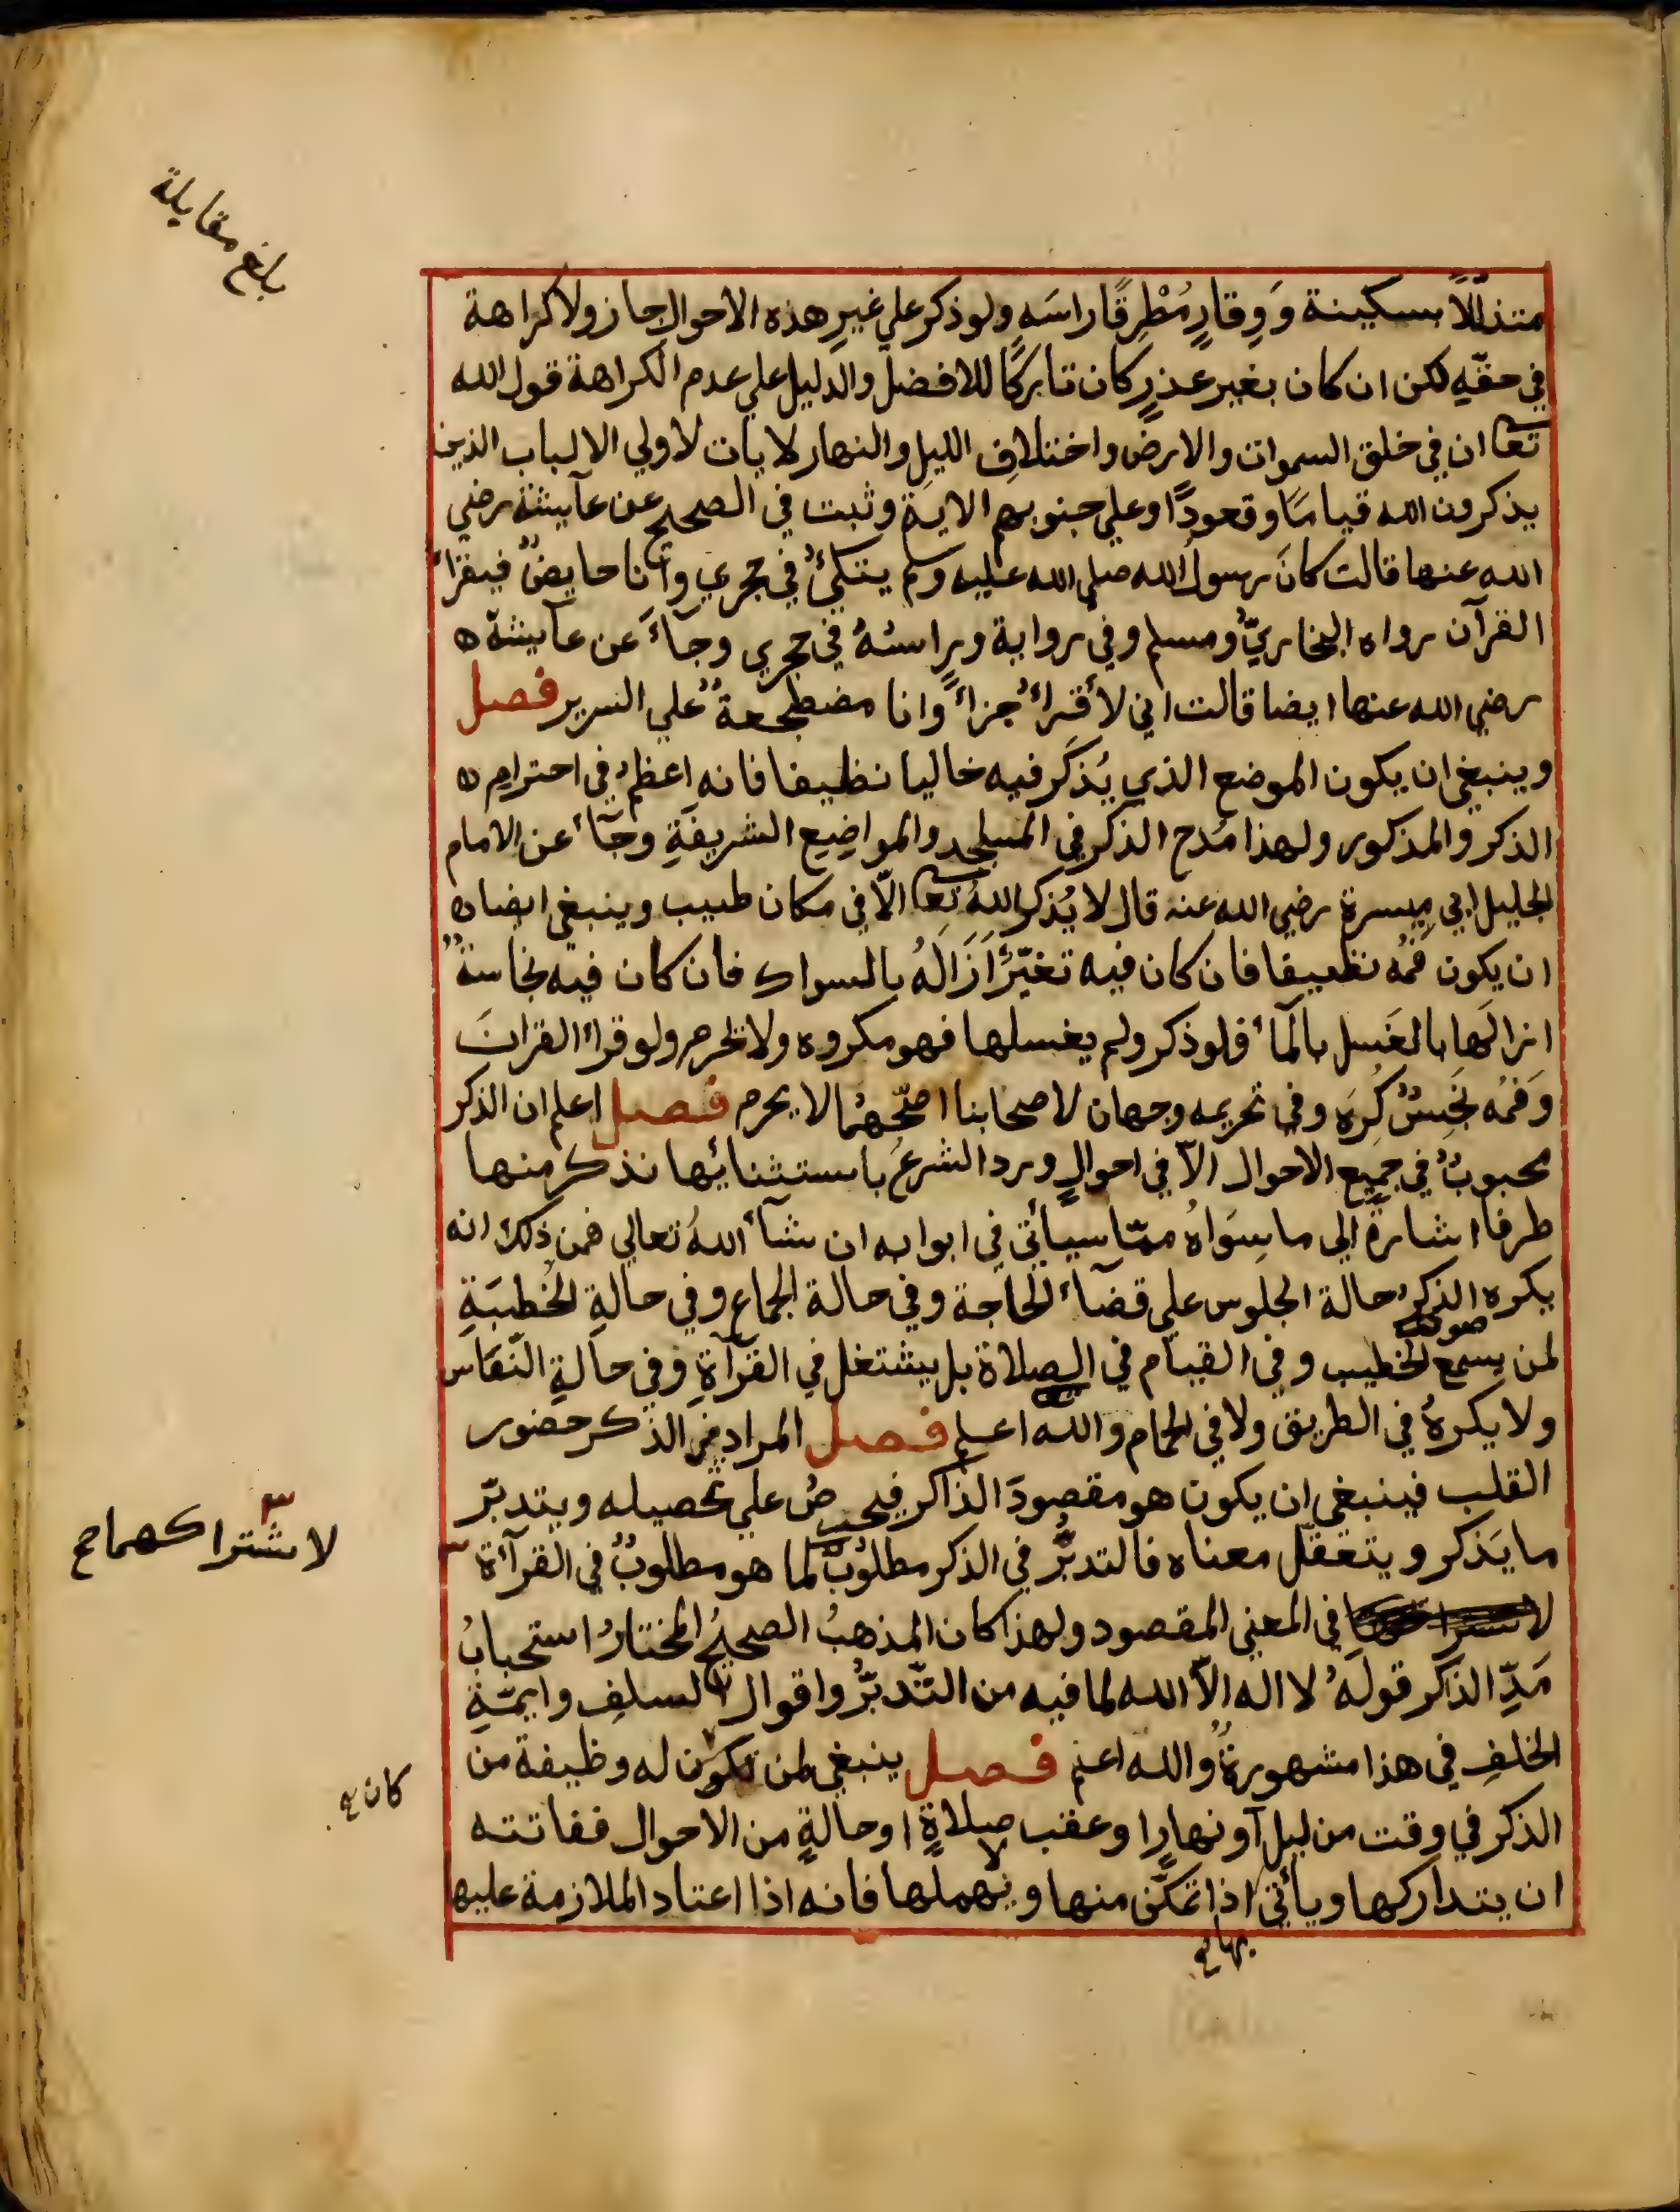 بلغ مقابلة
متذلّلاً بسكينة وَوِقارٍ مُطْرِقًا راسَه ولو ذكر علي غيرِ هذه الاحوال جاز ولا كراهة
في حقّهِ لكن ان كان بغير عذرٍ كان تاركًا للافضل والدليل علي عدم الكراهة قول الله
تعا ان في خلق السموات والارض واختلافِ الليل والنهار لايات لاولي الالباب الذين
يذكرون الله قيامًا وقعودًا وعلي جنوبهم الاية وثبت في الصحيح عن عآيشة رضي
الله عنها قالت كانَ رسولُ الله صلي الله عليه وسلم يتكئُ في حجري وأنا حايضٌ فيقرأ
القرآن رواه البخاريّ ومسلم وفي رواية وراسُهُ في حجري وجآءَ عن عآيشة ه
رضي الله عنها ايضا قالت اني لأقرأُ جزأً وانا مضطجعةٌ علي السرير فصل
وينبغي ان يكون الموضع الذي يُذكَر فيه خاليا نظيفا فانه اعظمُ في احترامِ ه
الذكر والمذكور ولهذا مُدح الذكر في المساجد والمواضِيع الشريفةِ وجآءَ عن الامام
الجليل ابي مِيسرة رضي الله عنه قال لا يُذكر اللهُ تعا الّا في مكان طيب وينبغي ايضا ه
ان يكون فمُه نظيفا فان كان فيه تغيّرٌ اَزَالَهُ بالسواك فان كان فيه نجاسةٌ
ازالَها بالغَسل بالمآء فلو ذكر ولم يغسلها فهو مكروه ولا تحرم ولو قرأ القرانَ
وَفمُه نجِسٌ كُرِهَ وفي تحريمه وجهان لاصحابنا اصحّهُما لا يحرم فصل اعلم ان الذكر
محبوبٌ في جميع الاحوال الّا في احوالٍ ورد الشرعُ باستثنائِها نذكر منها
طرفا اشارةً الي ما سِوَاهُ ممّا سيأتي في ابوابه ان شآءَ اللهُ تعالي فمن ذلك انه
يكره الذكرُ حالة الجلوس علي قضآء الحاجة وفي حالة الجماع وفي حالةِ الخُطبَةِ
لمن يسمع صوت الخطيب وفي القيام في الصلاة بل يشتغل في القرآةِ وفي حالةِ النّعَاس
ولا يكرهُ في الطريق ولا في الحمام والله اعلم فصل المراد من الذكر حضور
القلب فينبغي ان يكون هو مقصودَ الذاكر فيحرصُ علي تحصيله ويتدبّر
ما يَذكر ويتعقّل معناه فالتدبُّر في الذكر مطلوبٌ كما هو مطلوبٌ في القرآءة
لاشتراكهما صح
في المعني المقصود ولهذا كان المذهبُ الصحيحُ المختارُ استحبابُ
مَدِّ الذاكر قولَهُ لا اله الّا الله لما فيه من التّدبُّر واقوال السلفِ وايمّةِ
الخلفِ في هذا مشهورةٌ والله اعلم فصل ينبغي لمن تكون له وظيفة من
كان
الذكر في وقت من ليل أو نهارٍ او عقب صلاةٍ او حالةٍ من الاحوال ففاتته
ان يتداركها ويأتي اذا تمكّن منها ولا يهملها فانه اذا اعتاد الملازمة عليها
بها